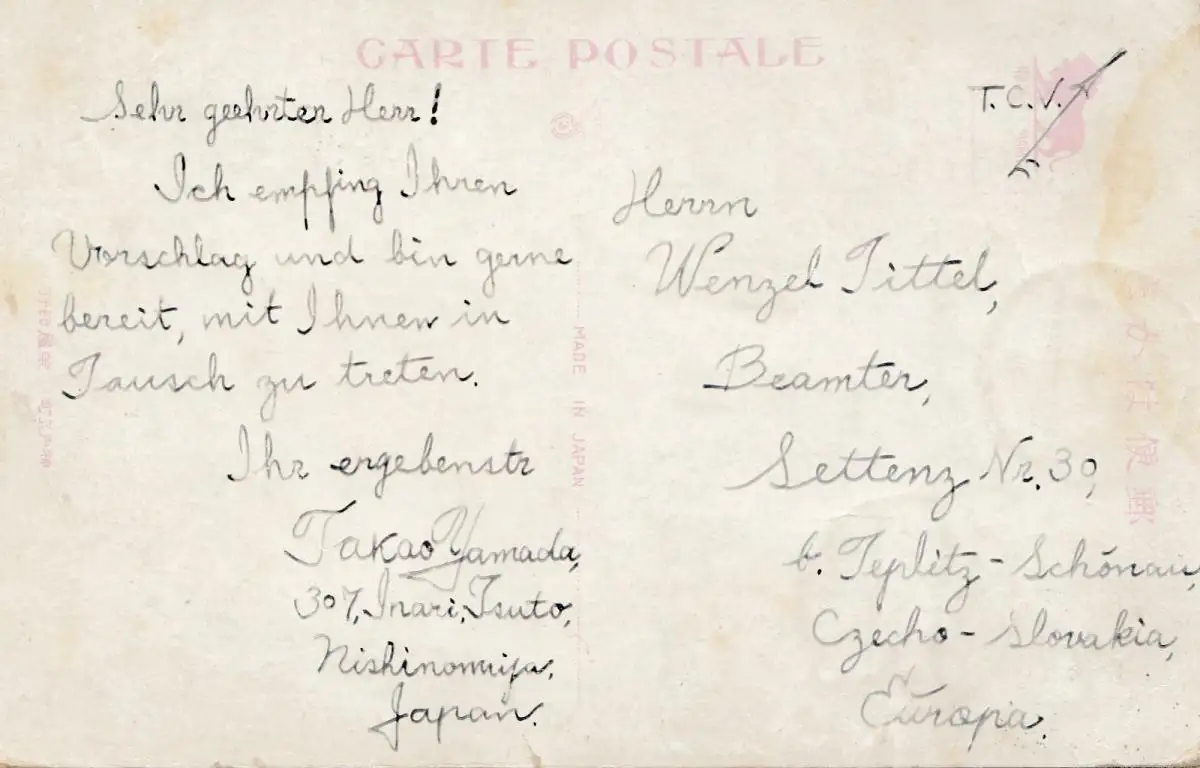 CARTE POSTALE
Sehr geehrter Herr!
Ich empfing Ihren
Vorschlag und bin gerne
bereit, mit Ihnen in
Tausch zu treten.
Ihr ergebenstr
Takao Yamada,
307, Inari, Tsuto,
Nishinomiya,
Japan.
MADE IN JAPAN
T.C.V.
Herrn
Wenzel Tittel,
Beamter,
Settenz Nr. 30,
b. Teplitz-Schönau,
Czecho-Slovakia,
Europa.
郵便はがき